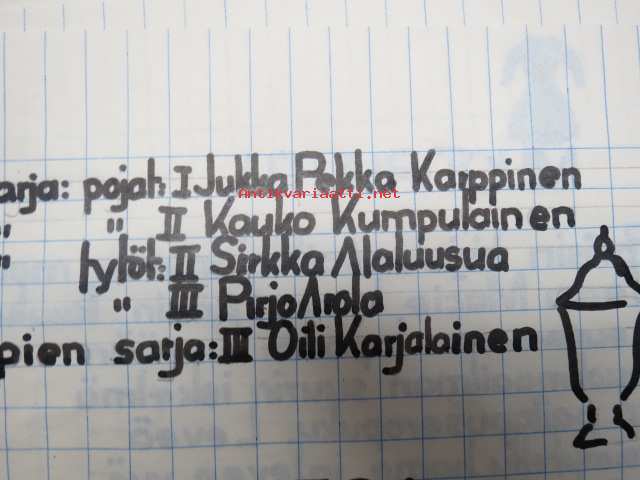 arja: pojat: I Jukka Pekka Karppinen
Antikvariaatti.net
" " II Kauko Kumpulainen
" tytöt: II Sirkka Alaluusua
" III Pirjo Arola
pien sarja: III Oili Karjalainen